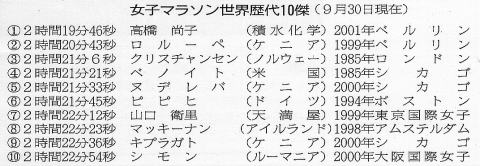 女子マラソン世界歴代10傑(9月30日現在)
①2時間19分46秒 高橋 尚子 (積水化学) 2001年ベルリン
②2時間20分43秒 ロルーペ (ケニア) 1999年ベルリン
③2時間21分6秒 クリスチャンセン (ノルウェー) 1985年ロンドン
④2時間21分21秒 ベノイト (米国) 1985年シカゴ
⑤2時間21分33秒 ヌデレバ (ケニア) 2000年シカゴ
⑥2時間21分45秒 ピピヒ (ドイツ) 1994年ボストン
⑦2時間22分12秒 山口 衛里 (天満屋) 1999年東京国際女子
⑧2時間22分23秒 マッキーナン (アイルランド) 1998年アムステルダム
⑨2時間22分36秒 キプラガト (ケニア) 2000年シカゴ
⑩2時間22分54秒 シモン (ルーマニア) 2000年大阪国際女子